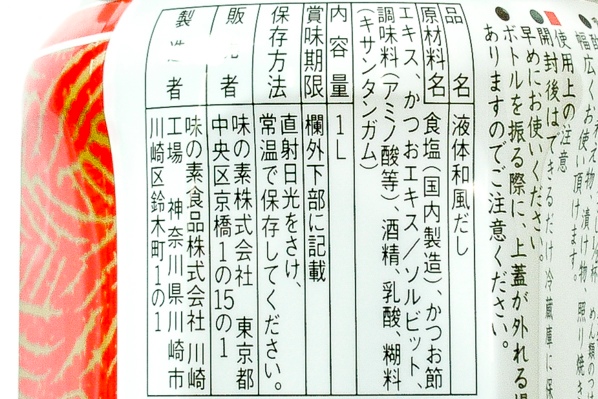 幅広くお使い頂けます。
漬け物、照り焼き
使用上の注意
開封後はできるだけ冷蔵庫に保
早めにお使いください。
ボトルを振る際に、上蓋が外れる
ありますのでご注意ください。
品名 液体和風だし
原材料名 食塩(国内製造)、かつお節
エキス、かつおエキス/ソルビット、
調味料(アミノ酸等)、酒精、乳酸、糊料
(キサンタンガム)
内容量 1L
賞味期限 欄外下部に記載
保存方法 直射日光をさけ、
常温で保存してください。
販 者 味の素株式会社 東京都
中央区京橋1の15の1
製 者 味の素食品株式会社 川崎
工場 神奈川県川崎市
川崎区鈴木町1の1